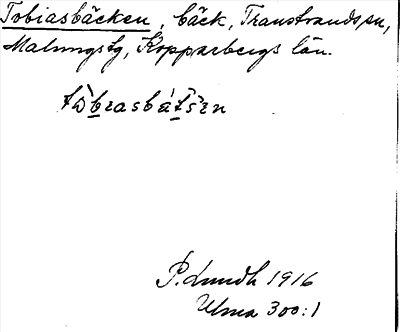 Tobiasbäcken, bäck, Transtrands sn,
Malungs tg, Kopparbergs län.
P. Lundh 1916
Ulma 300:1